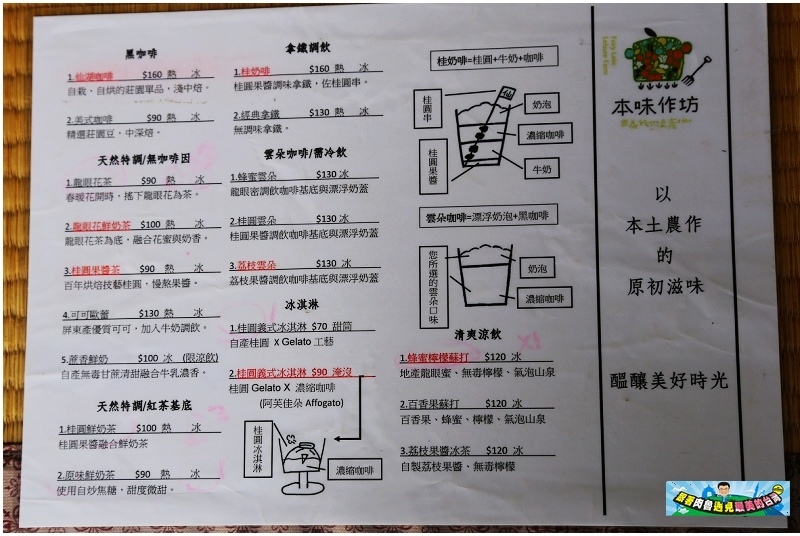 黑咖啡
1.仙湖咖啡 $160 熱 冰
自栽、自烘的莊園單品，淺中焙。
2.美式咖啡 $90 熱 冰
精選莊園豆，中深焙。
天然特調/無咖啡因
1.龍眼花茶 $90 熱 冰
春暖花開時，搖下龍眼花為茶。
2.龍眼花鮮奶茶 $100 熱 冰
龍眼花茶為底，融合花蜜與奶香。
3.桂圓果醬茶 $90 熱 冰
百年烘焙技藝桂圓，慢熬果醬。
4.可可歐蕾 $130 熱 冰
屏東產優質可可，加入牛奶調飲。
5.蔗香鮮奶 $100 冰 (限涼飲)
自產無毒甘蔗清甜融合牛乳濃香。
天然特調/紅茶基底
1.桂圓鮮奶茶 $100 熱 冰
桂圓果醬融合鮮奶茶
2.原味鮮奶茶 $90 熱 冰
使用自炒焦糖，甜度微甜。
拿鐵調飲
1.桂奶啡 $160 熱 冰
桂圓果醬調味拿鐵，佐桂圓串。
2.經典拿鐵 $130 熱 冰
無調味拿鐵。
雲朵咖啡/需冷飲
1.蜂蜜雲朵 $130 冰
龍眼密調飲咖啡基底與漂浮奶蓋
2.桂圓雲朵 $130 冰
桂圓果醬調飲咖啡基底與漂浮奶蓋
3.荔枝雲朵 $130 冰
荔枝果醬調飲咖啡基底與漂浮奶蓋
冰淇淋
1.桂圓義式冰淇淋 $70 甜筒
自產桂圓 X Gelato 工藝
2.桂圓義式冰淇淋 $90 淹沒
桂圓 Gelato X 濃縮咖啡
(阿芙佳朵 Affogato)
桂圓冰淇淋
濃縮咖啡
桂奶啡=桂圓+牛奶+咖啡
桂圓串
仙
奶泡
濃縮咖啡
桂圓果醬
牛奶
雲朵咖啡=漂浮奶泡+黑咖啡
您所選的雲朵口味
奶泡
濃縮咖啡
清爽涼飲
1.蜂蜜檸檬蘇打 $120 冰
地產龍眼蜜、無毒檸檬、氣泡山泉
2.百香果蘇打 $120 冰
百香果、蜂蜜、檸檬、氣泡山泉
3.荔枝果醬冰茶 $120 冰
自製荔枝果醬、無毒檸檬
Fairy Lake
Leisure Farm
本味作坊
以
本土農作
的
原初滋味
醞釀美好時光
跟著肉魯遇見最美的台灣